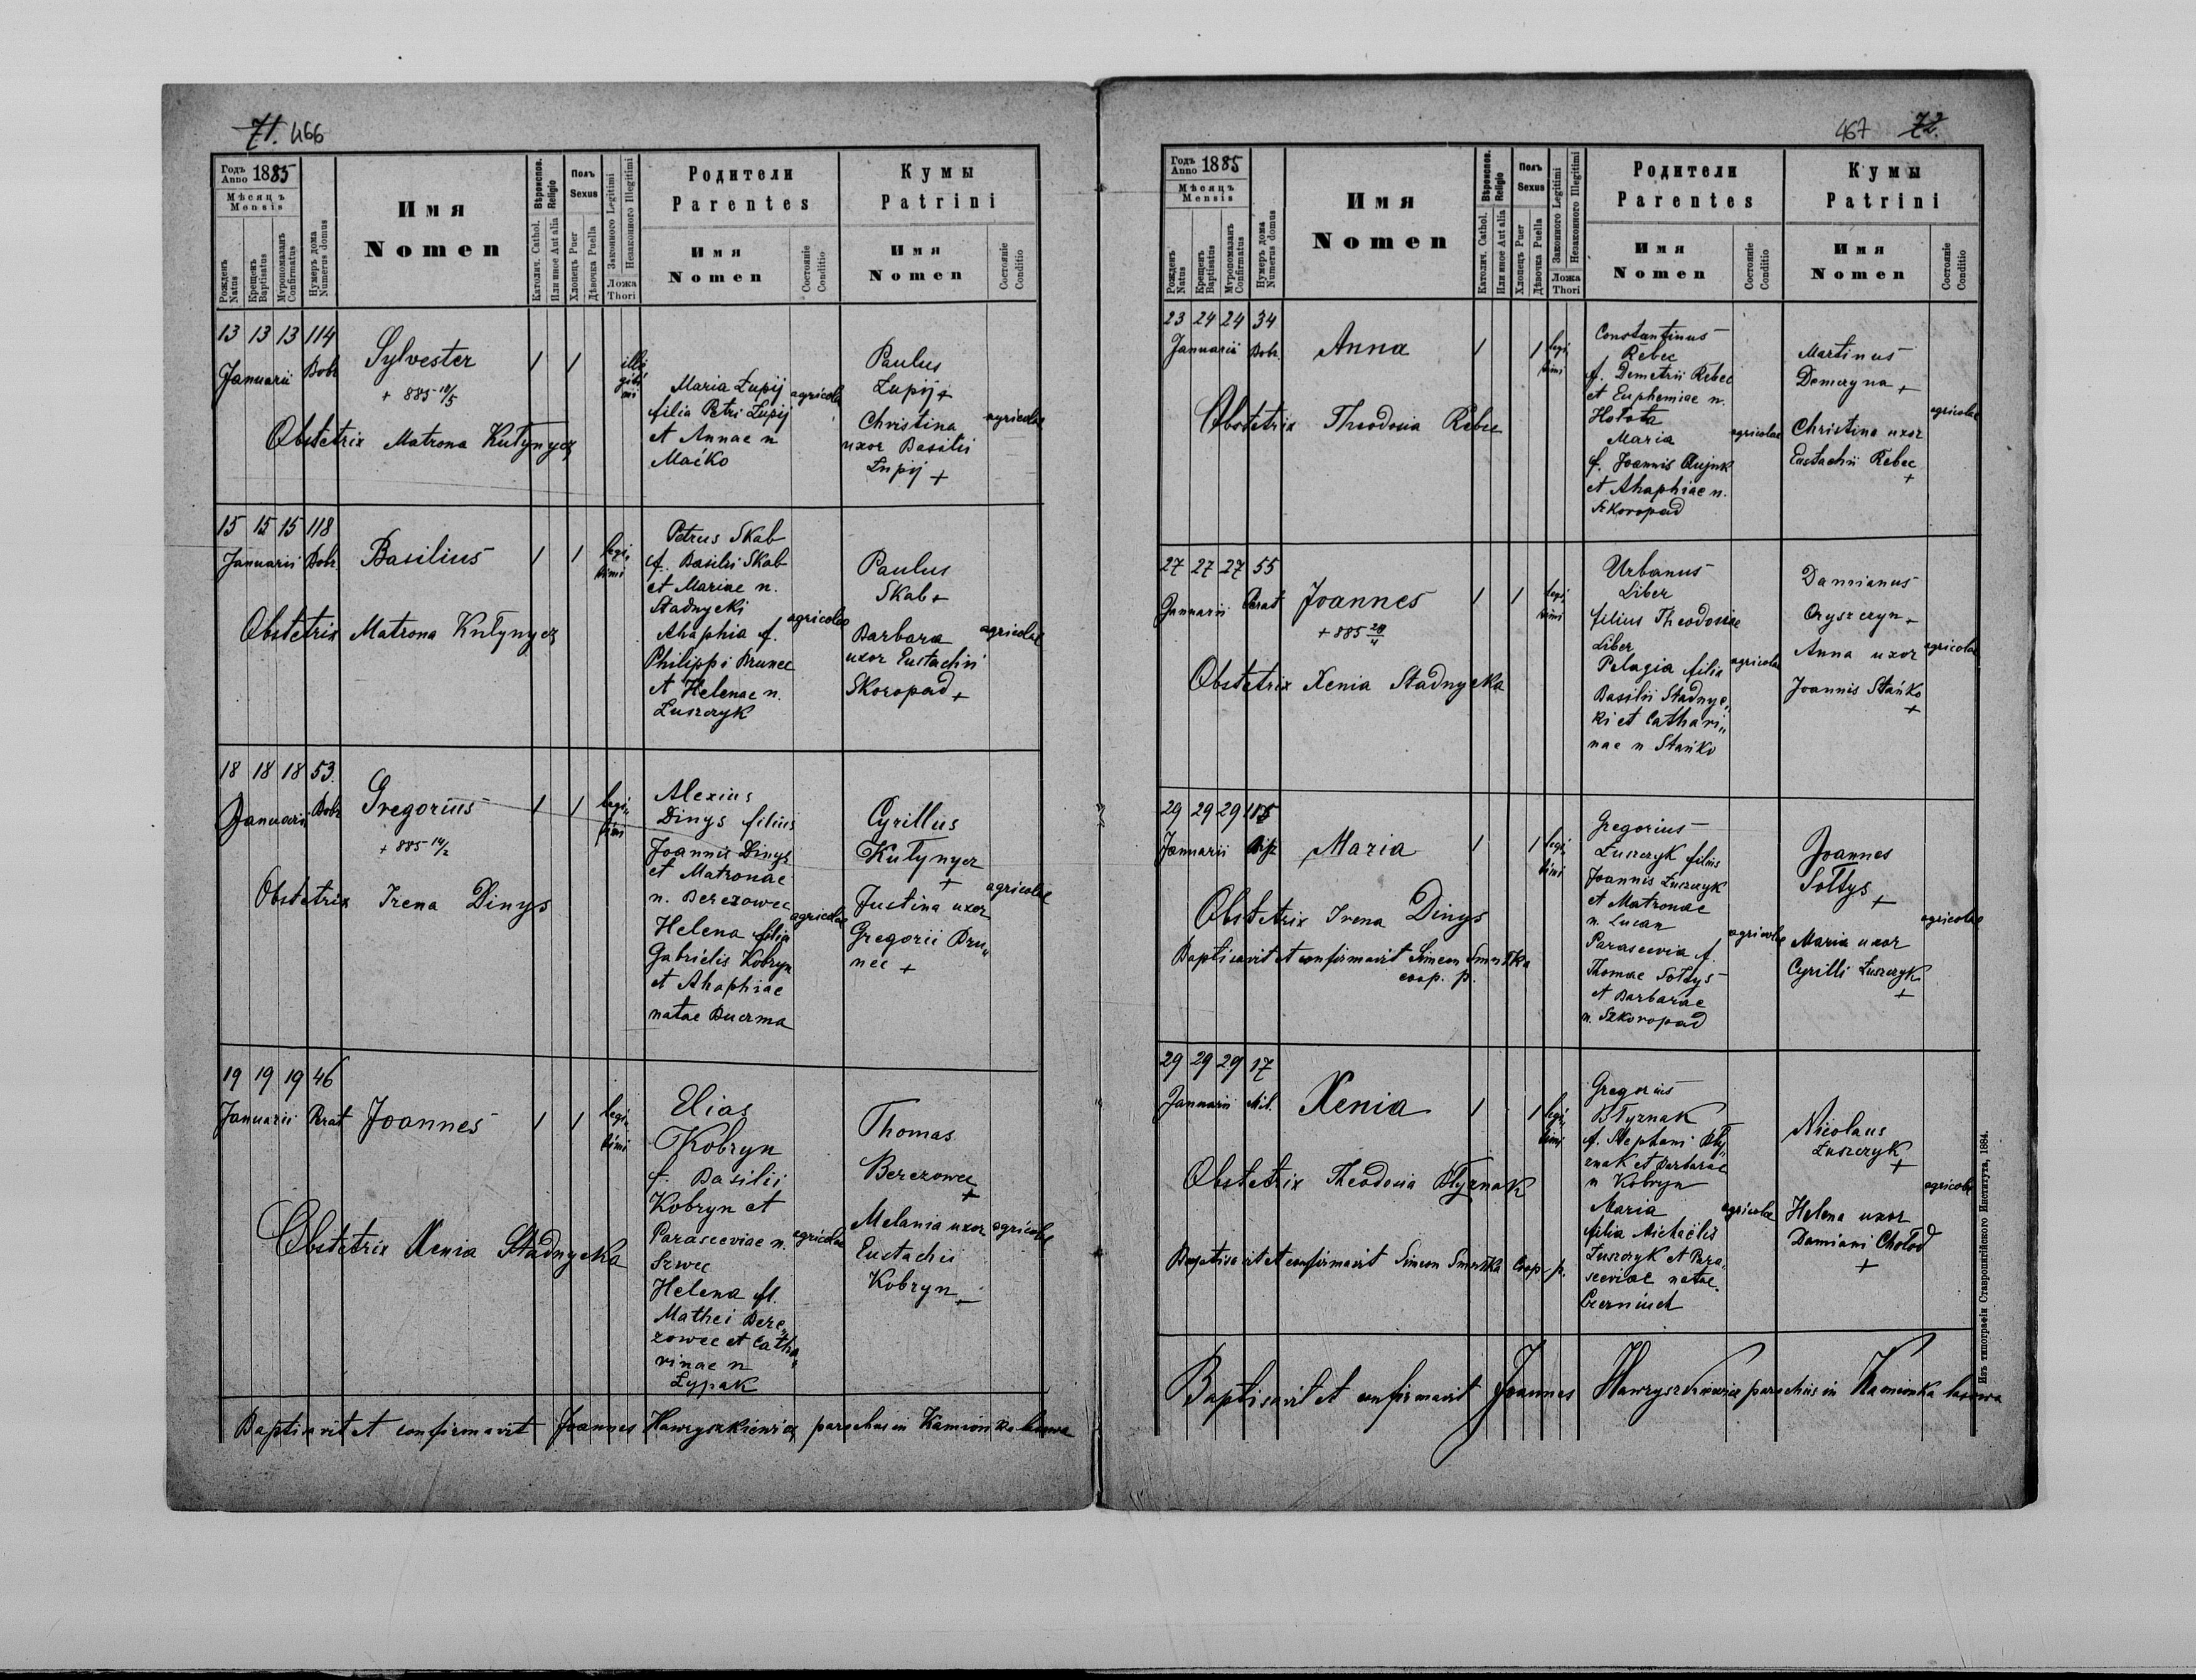 71. 466
Годъ Anno 1885
Мѣсяцъ Mensis
Рожденъ Natus
Крещенъ Baptisatus
Мѵропомазанъ Confirmatus
Нумеръ дома Numerus domus
Имя Nomen
Вѣроиспов. Religio
Католич. Cathol.
Или иное Aut alia
Полъ Sexus
Хлопецъ Puer
Дѣвочка Puella
Законного Legitimi
Незаконного Illegitimi
Ложа Thori
Родители Parentes
Имя Nomen
Состояніе Conditio
Кумы Patrini
Имя Nomen
Состояніе Conditio
13 13 13 114
Januarii Dobr
Sylvester
+ 885 18/5
1 1
illegitimi
Obstetrix Matrona Kułynycz
Maria Łupij
filia Petri Łupij
et Annae n
Maćko
agricolae
Paulus
Łupij +
Christina
uxor Basilii
Łupij +
agricolae
15 15 15 118
Januarii Dobr
Basilius
1 1
legi„
timi
Obstetrix Matrona Kułynycz
Petrus Skab
f. Basilii Skab
et Mariae n.
Stadnycki
Ahaphia f.
Philippi Brunec
et Helenae n.
Łuszczyk
agricolae
Paulus
Skab +
Barbara
uxor Eustachii
Skoropad +
agricolae
18 18 18 53.
Januarii Dobr
Gregorius
+ 885 14/2
1 1
legi„
timi
Obstetrix Irena Dinys
Alexius
Dinys filius
Joannis Dinys
et Matronae
n. Berezowec
Helena filia
Gabrielis Kobryn
et Ahaphiae
natae Buczma
agricolae
Cyrillus
Kułynycz
+
Justina uxor
Gregorii Bru„
nec +
agricolae
19 19 19 46
Januarii Perat
Joannes
1 1
legi„
timi
Obstetrix Xenia Stadnycka
Elias
Kobryn
f. Basilii
Kobryn et
Parasceviae n.
Szwec
Helena fl.
Mathei Bere„
zowec et Catha„
rinae n
Łypak
agricolae
Thomas
Berezowec
+
Melania uxor
Eustachii
Kobryn +
agricolae
Baptisavit et confirmavit Joannes Hawryszkiewicz parochus in Kamionka
467 72.
Годъ Anno 1885
Мѣсяцъ Mensis
Рожденъ Natus
Крещенъ Baptisatus
Мѵропомазанъ Confirmatus
Нумеръ дома Numerus domus
Имя Nomen
Вѣроиспов. Religio
Католич. Cathol.
Или иное Aut alia
Полъ Sexus
Хлопецъ Puer
Дѣвочка Puella
Законного Legitimi
Незаконного Illegitimi
Ложа Thori
Родители Parentes
Имя Nomen
Состояніе Conditio
Кумы Patrini
Имя Nomen
Состояніе Conditio
23 24 24 34
Januarii Dobr.
Anna
1 1
legi„
timi
Obstetrix Theodosia Rebec
Constantinus
Rebec
f. Demetrii Rebec
et Euphemiae n.
Hołota
Maria
f. Joannis
et Ahaphiae n.
Szkoropad
agricolae
Martinus
Domczyna +
Christina uxor
Eustachii Rebec
+
agricolae
27 27 27 55
Januarii Perat
Joannes
+ 885 28/4
1 1
legi„
timi
Obstetrix Xenia Stadnycka
Urbanus
Liber
filius Theodosiae
Liber
Pelagia filia
Basilii Stadnyc„
ki et Cathari„
nae n Stańko
agricolae
Damianus
Oryszczyn +
Anna uxor
Joannis Stańko
+
agricolae
29 29 29
Januarii
Maria
1 1
legi„
timi
Obstetrix Irena Dinys
Baptisavit et confirmavit Simeon Smulka
coop. p.
Gregorius
Łuszczyk filius
Joannis Łuszczyk
et Matronae
n. Lucan
Parascevia f.
Thomae Sołtys
et Barbarae
n. Szkoropad
agricolae
Joannes
Sołtys
+
Maria uxor
Cyrilli Łuszczyk
+
agricolae
29 29 29 17
Januarii Mil.
Xenia
1 1
legi„
timi
Obstetrix Theodosia Błyznak
Baptisavit et confirmavit Simeon Smulka Coop. p.
Gregorius
Błyznak
f. Stephani Bły„
znak et Barbarae
n Kobryn
Maria
filia Michaëlis
Łuszczyk et Para„
sceviae natae
agricolae
Nicolaus
Łuszczyk
+
Helena uxor
Damiani Chołod
+
agricolae
Baptisavit et confirmavit Joannes Hawryszkiewicz parochus in Kamionka
Изъ типографіи Ставропигійского Института, 1884.